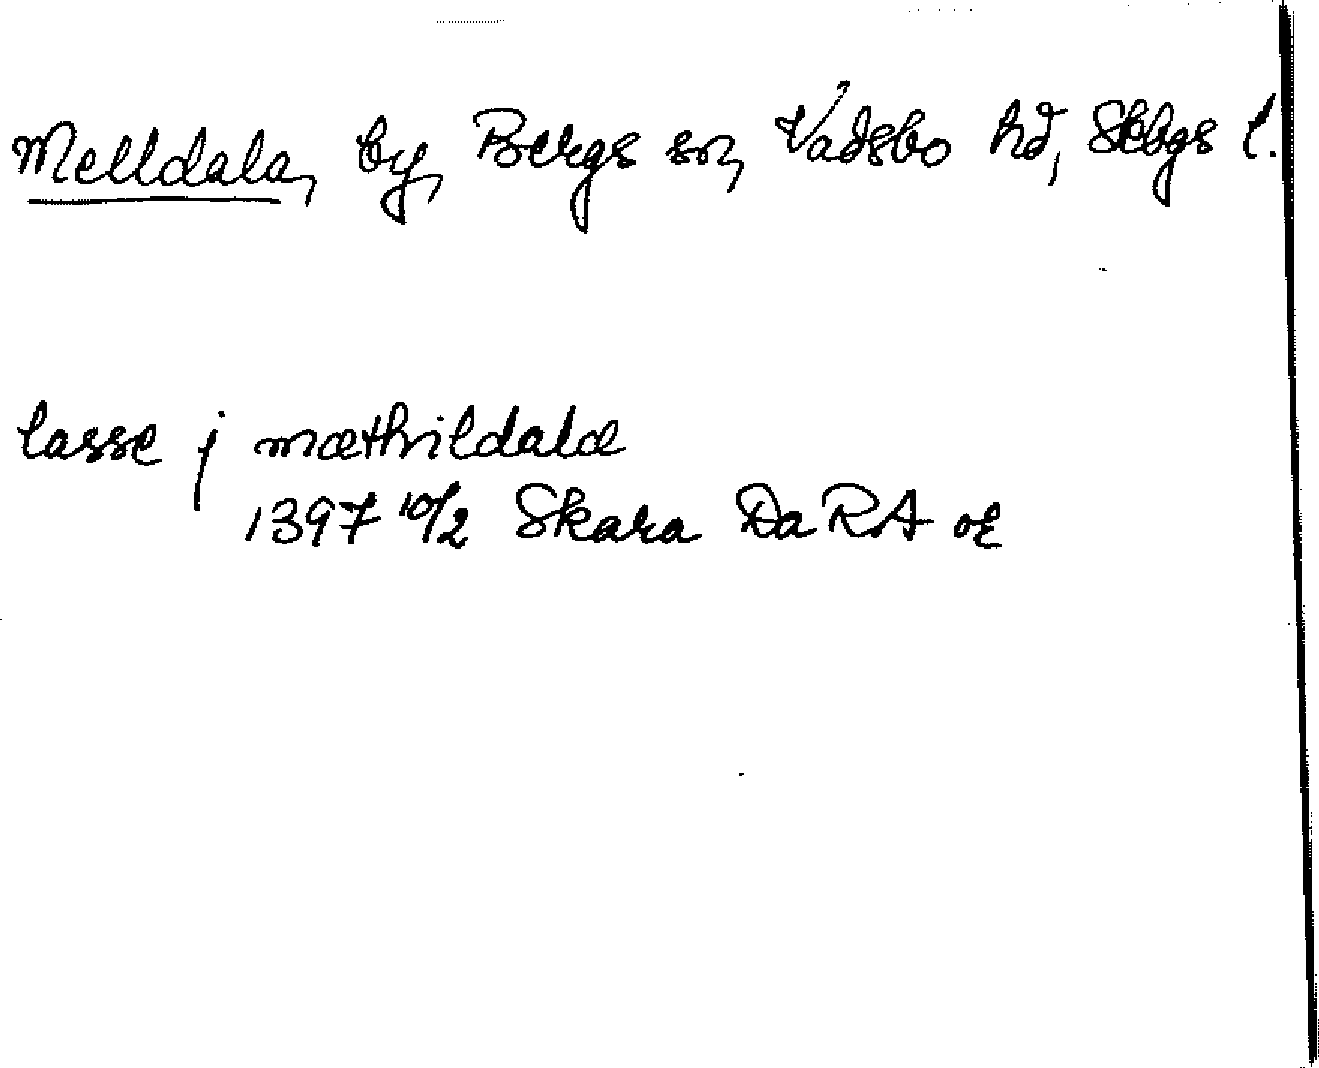 Melldala, by, Bergs sn, Vadsbo hd, Skbgs l.
lasse j mæthildalæ
1397 10/2 Skara DaRA or